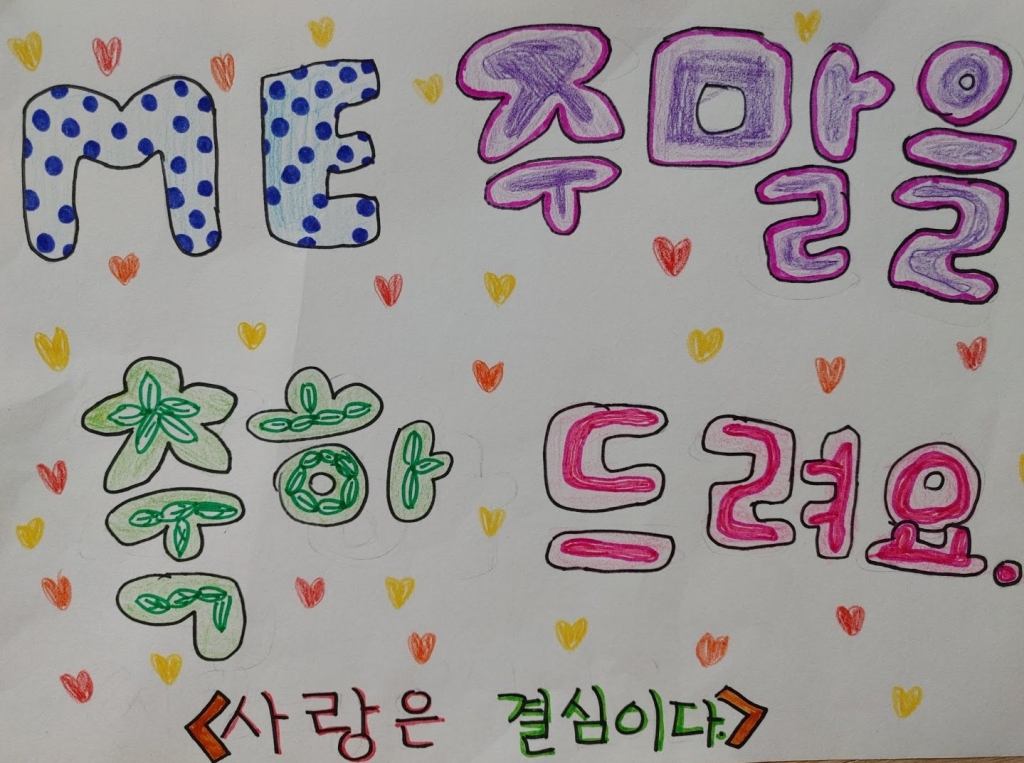 ME 주말을
축하 드려요.
<사랑은 결심이다.>